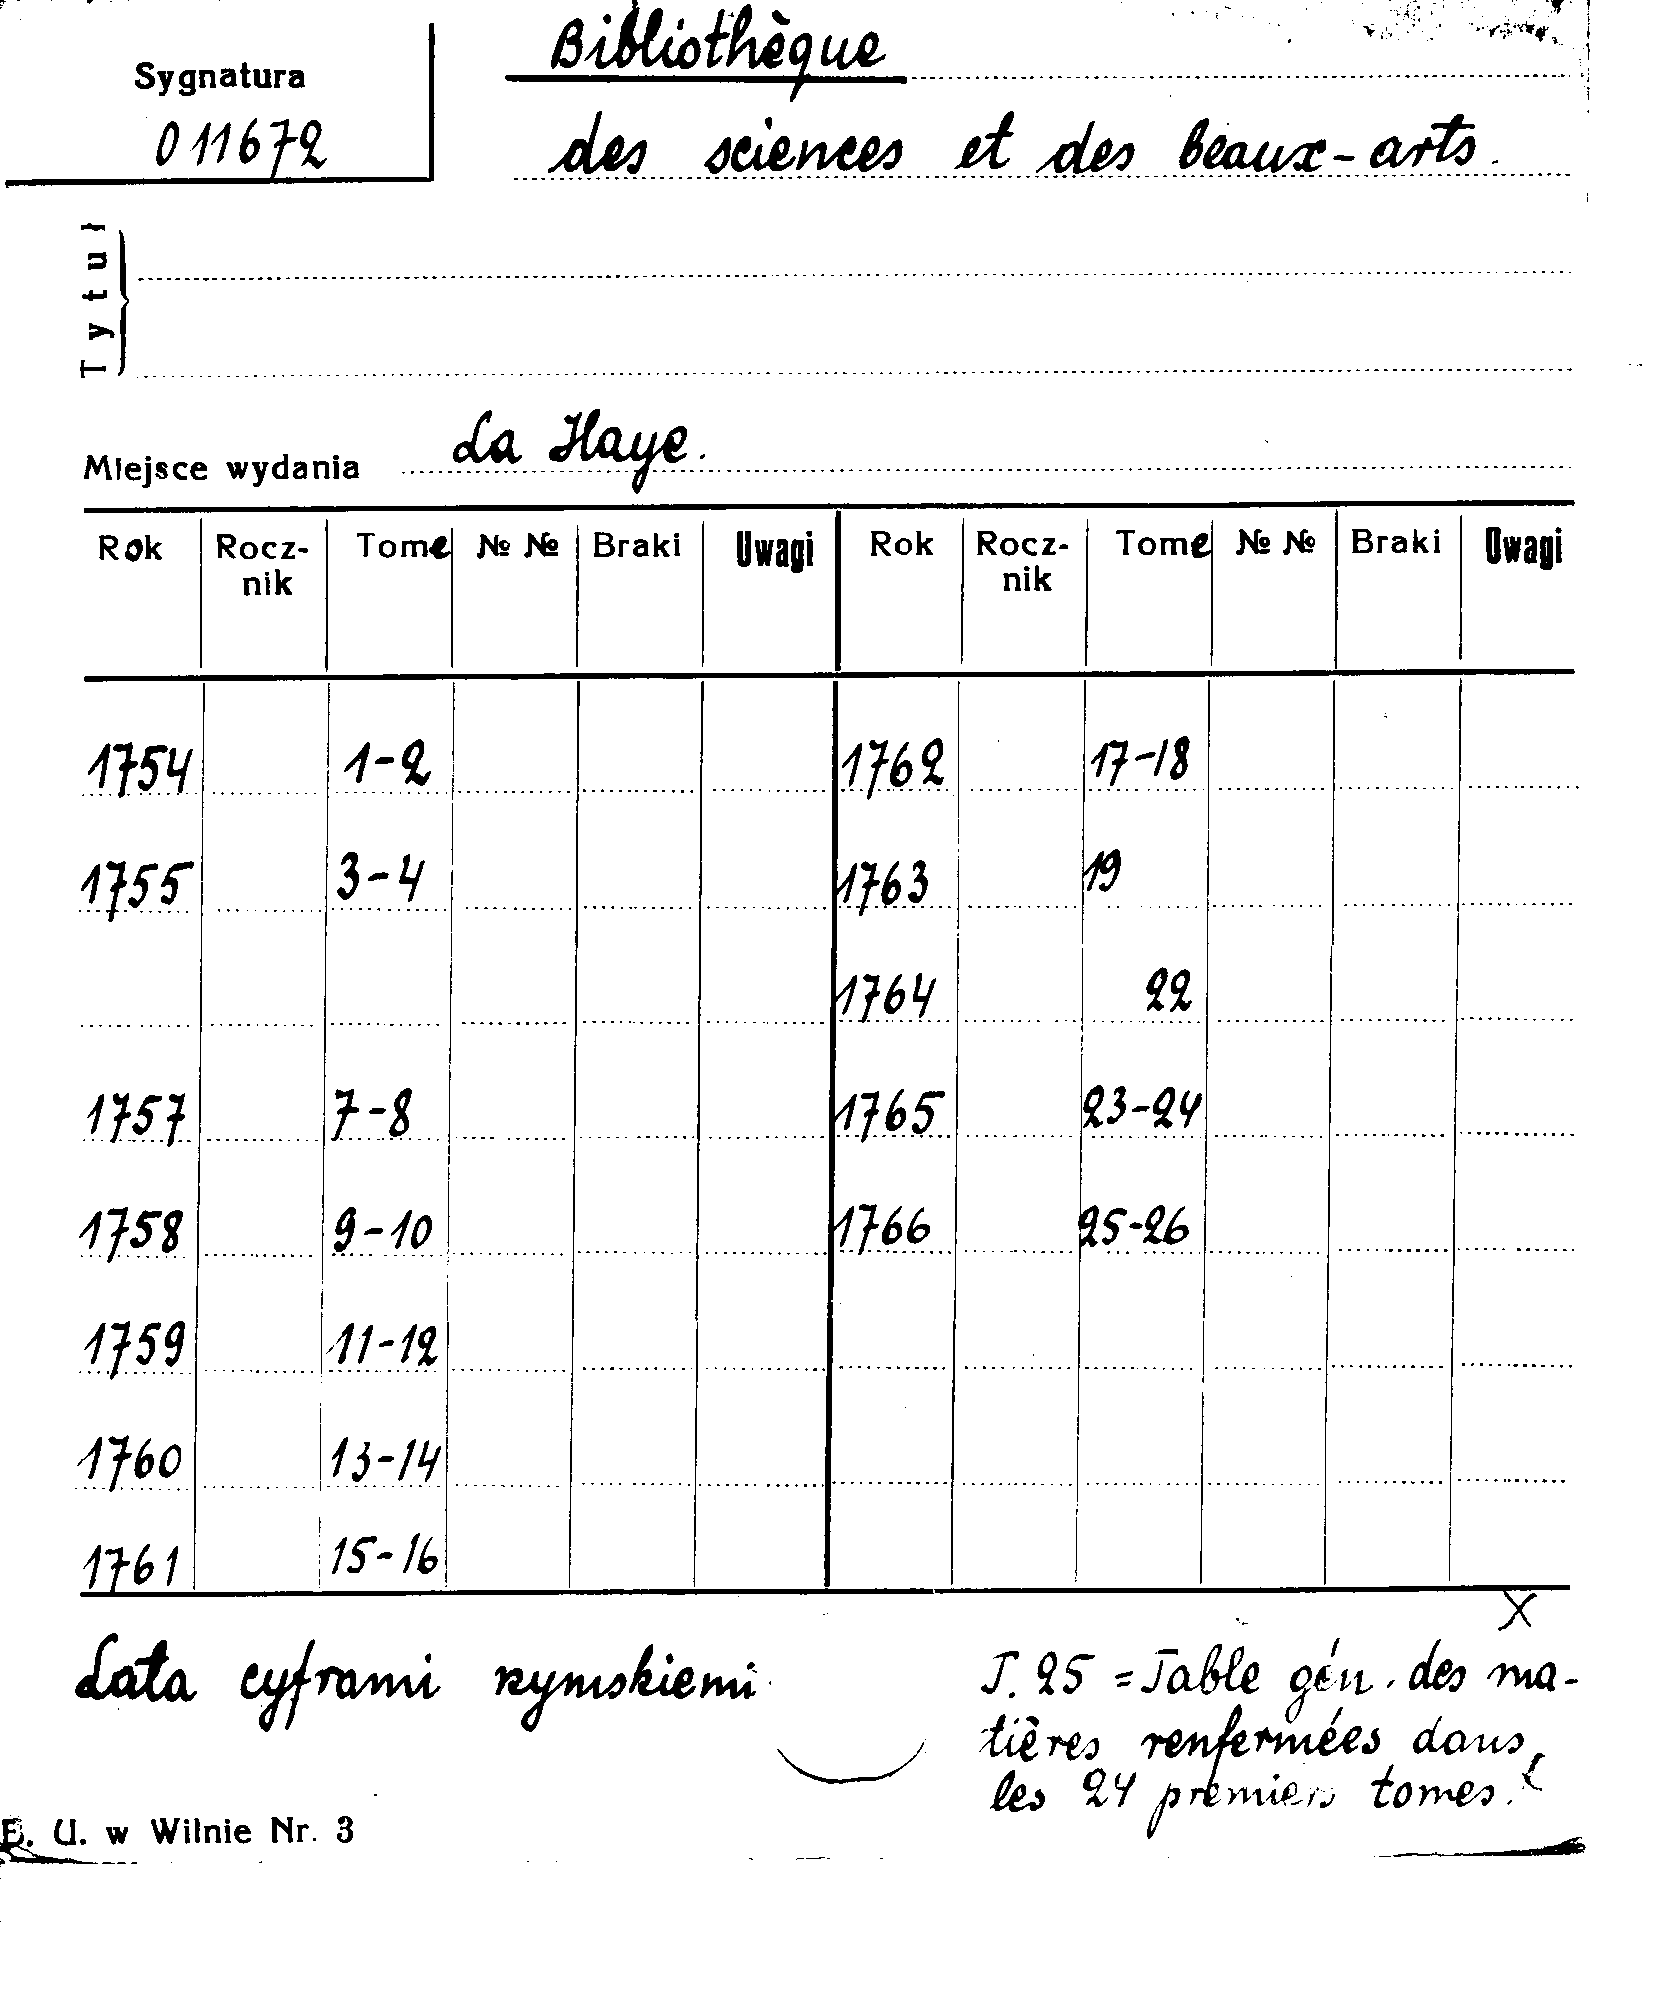 Sygnatura
011672
Bibliothèque
des sciences et des beaux-arts.
Tytuł
Miejsce wydania La Haye.
Rok Rocz-nik Tome № № Braki Uwagi Rok Rocz-nik Tome № № Braki Uwagi
1754 1-2 1762 17-18
1755 3-4 1763 19
1764 22
1757 7-8 1765 23-24
1758 9-10 1766 25-26
1759 11-12
1760 13-14
1761 15-16
X
Lata cyframi rzymskiemi
T. 25 = Table gén. des ma-
tières renfermées dans
les 24 premiers tomes.
B. U. w Wilnie Nr. 3